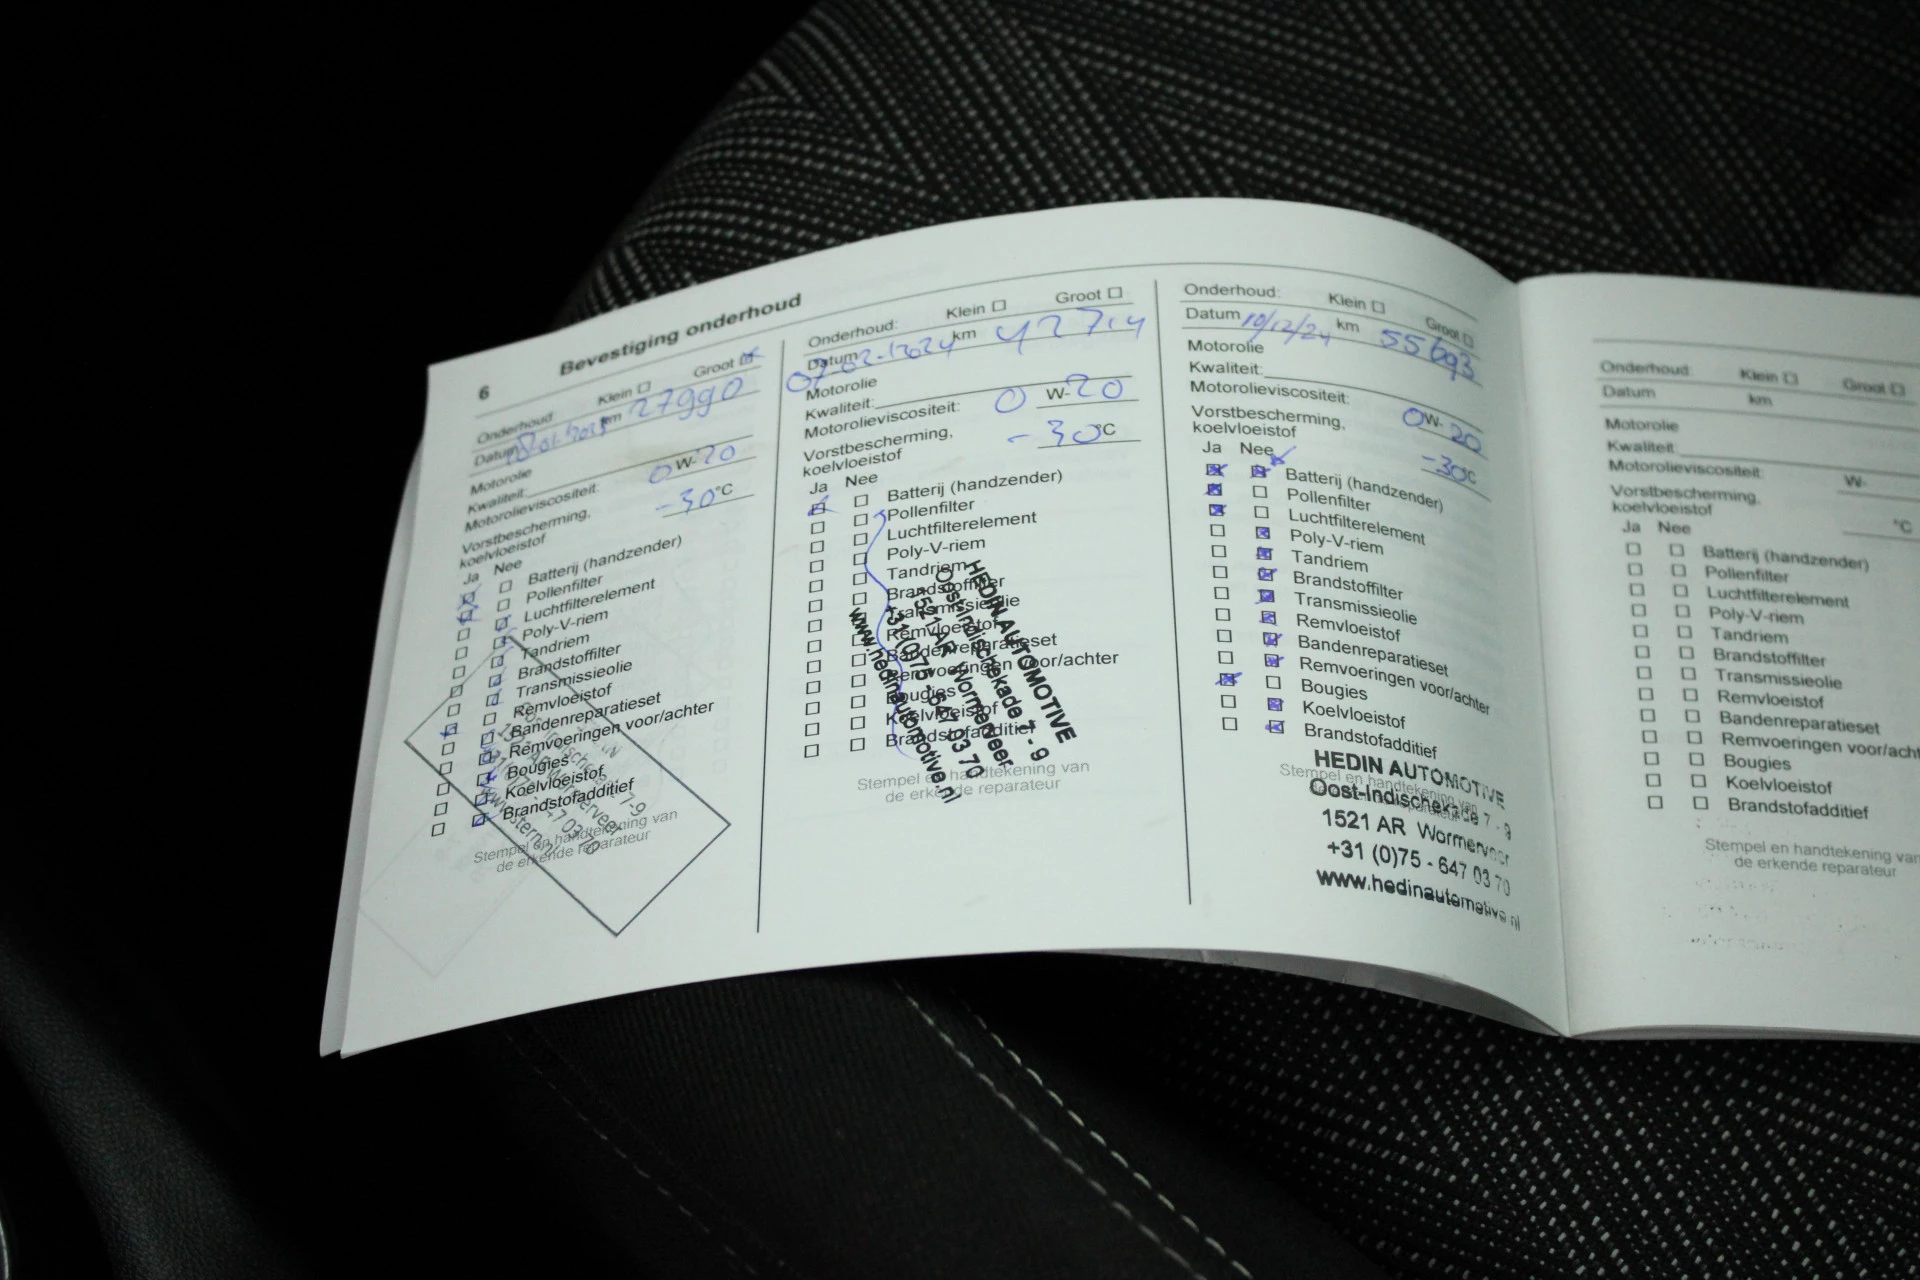 6 Bevestiging onderhoud
Onderhoud: Klein Groot
Datum km 27990
Motorolie
Kwaliteit:
Motorolieviscositeit: 0 W-20
Vorstbescherming,
koelvloeistof -30°C
Ja Nee
Batterij (handzender)
Pollenfilter
Luchtfilterelement
Poly-V-riem
Tandriem
Brandstoffilter
Transmissieolie
Remvloeistof
Bandenreparatieset
Remvoeringen voor/achter
Bougies
Koelvloeistof
Brandstofadditief
Stempel en handtekening van
de erkende reparateur
Onderhoud: Klein Groot
Datum 07-02-2024 km
Motorolie
Kwaliteit:
Motorolieviscositeit: 0 W-20
Vorstbescherming,
koelvloeistof -30°C
Ja Nee
Batterij (handzender)
Pollenfilter
Luchtfilterelement
Poly-V-riem
Tandriem
Brandstoffilter
Transmissieolie
Remvloeistof
Bandenreparatieset
Remvoeringen voor/achter
Bougies
Koelvloeistof
Brandstofadditief
HEDIN AUTOMOTIVE
Oost-Indischekade 7 - 9
1521 AR Wormerveer
+31 (0)75 - 647 03 70
www.hedinautomotive.nl
Stempel en handtekening van
de erkende reparateur
Onderhoud: Klein Groot
Datum 10/12/24 km 55693
Motorolie
Kwaliteit:
Motorolieviscositeit: 0W-20
Vorstbescherming,
koelvloeistof -30°C
Ja Nee
Batterij (handzender)
Pollenfilter
Luchtfilterelement
Poly-V-riem
Tandriem
Brandstoffilter
Transmissieolie
Remvloeistof
Bandenreparatieset
Remvoeringen voor/achter
Bougies
Koelvloeistof
Brandstofadditief
Stempel en handtekening van
HEDIN AUTOMOTIVE
Oost-Indischekade 7 - 9
1521 AR Wormerveer
+31 (0)75 - 647 03 70
www.hedinautomotive.nl
Onderhoud: Klein Groot
Datum km
Motorolie
Kwaliteit:
Motorolieviscositeit: W-
Vorstbescherming,
koelvloeistof °C
Ja Nee
Batterij (handzender)
Pollenfilter
Luchtfilterelement
Poly-V-riem
Tandriem
Brandstoffilter
Transmissieolie
Remvloeistof
Bandenreparatieset
Remvoeringen voor/acht
Bougies
Koelvloeistof
Brandstofadditief
Stempel en handtekening van
de erkende reparateur